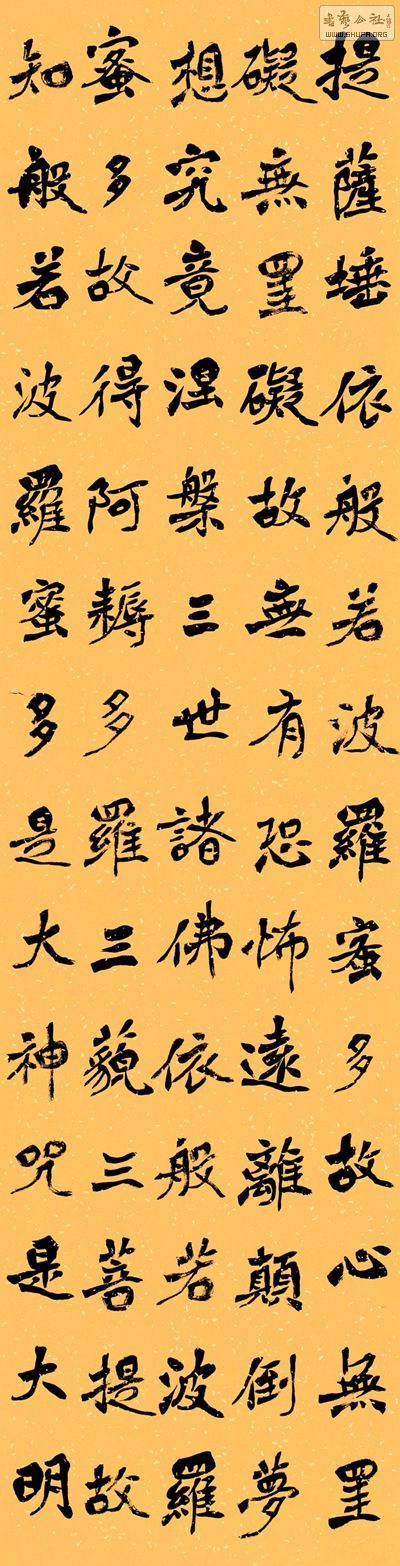 提薩埵依般若波羅蜜多故心無罣
礙無罣礙故無有恐怖遠離顛倒夢
想究竟涅槃三世諸佛依般若波羅
蜜多故得阿耨多羅三藐三菩提故
知般若波羅蜜多是大神咒是大明
公社
WWW.SHUFA.ORG